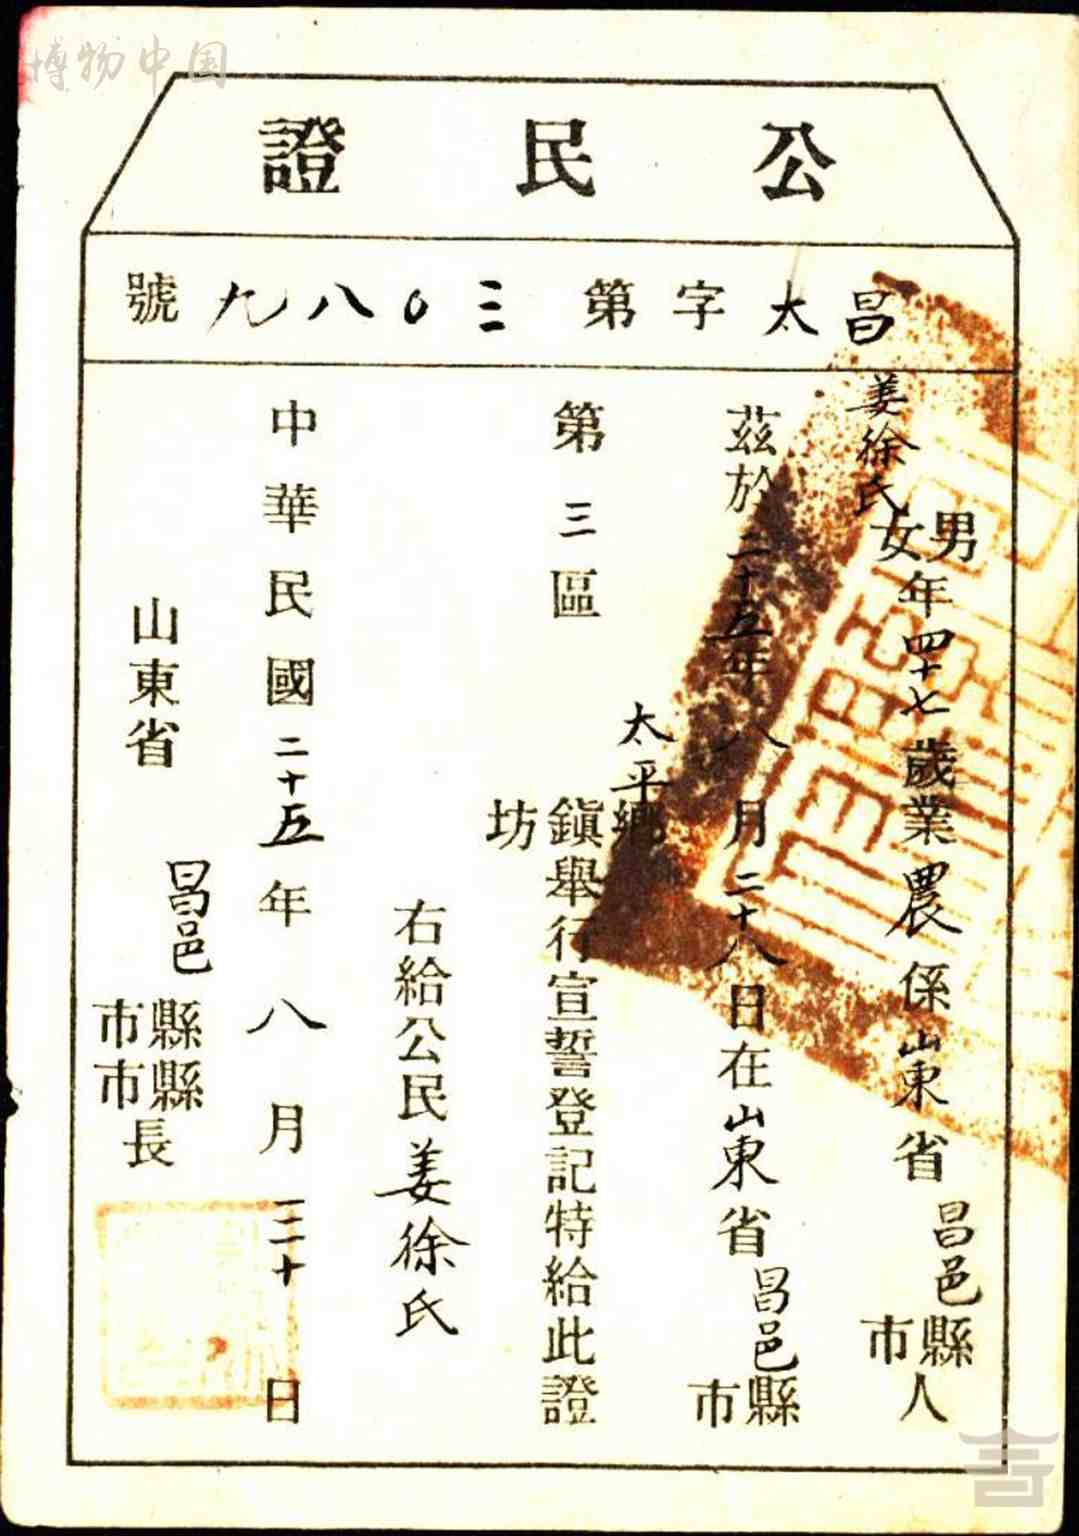 博物中国
公民證
昌太字第三〇八九號
姜徐氏男女年四十七歲業農係山東省昌邑縣市人
茲於二十五年八月二十八日在山東省昌邑縣市
第三區太平鄉鎮坊舉行宣誓登記特給此證
右給公民姜徐氏
中華民國二十五年八月三十日
山東省昌邑縣市縣市長